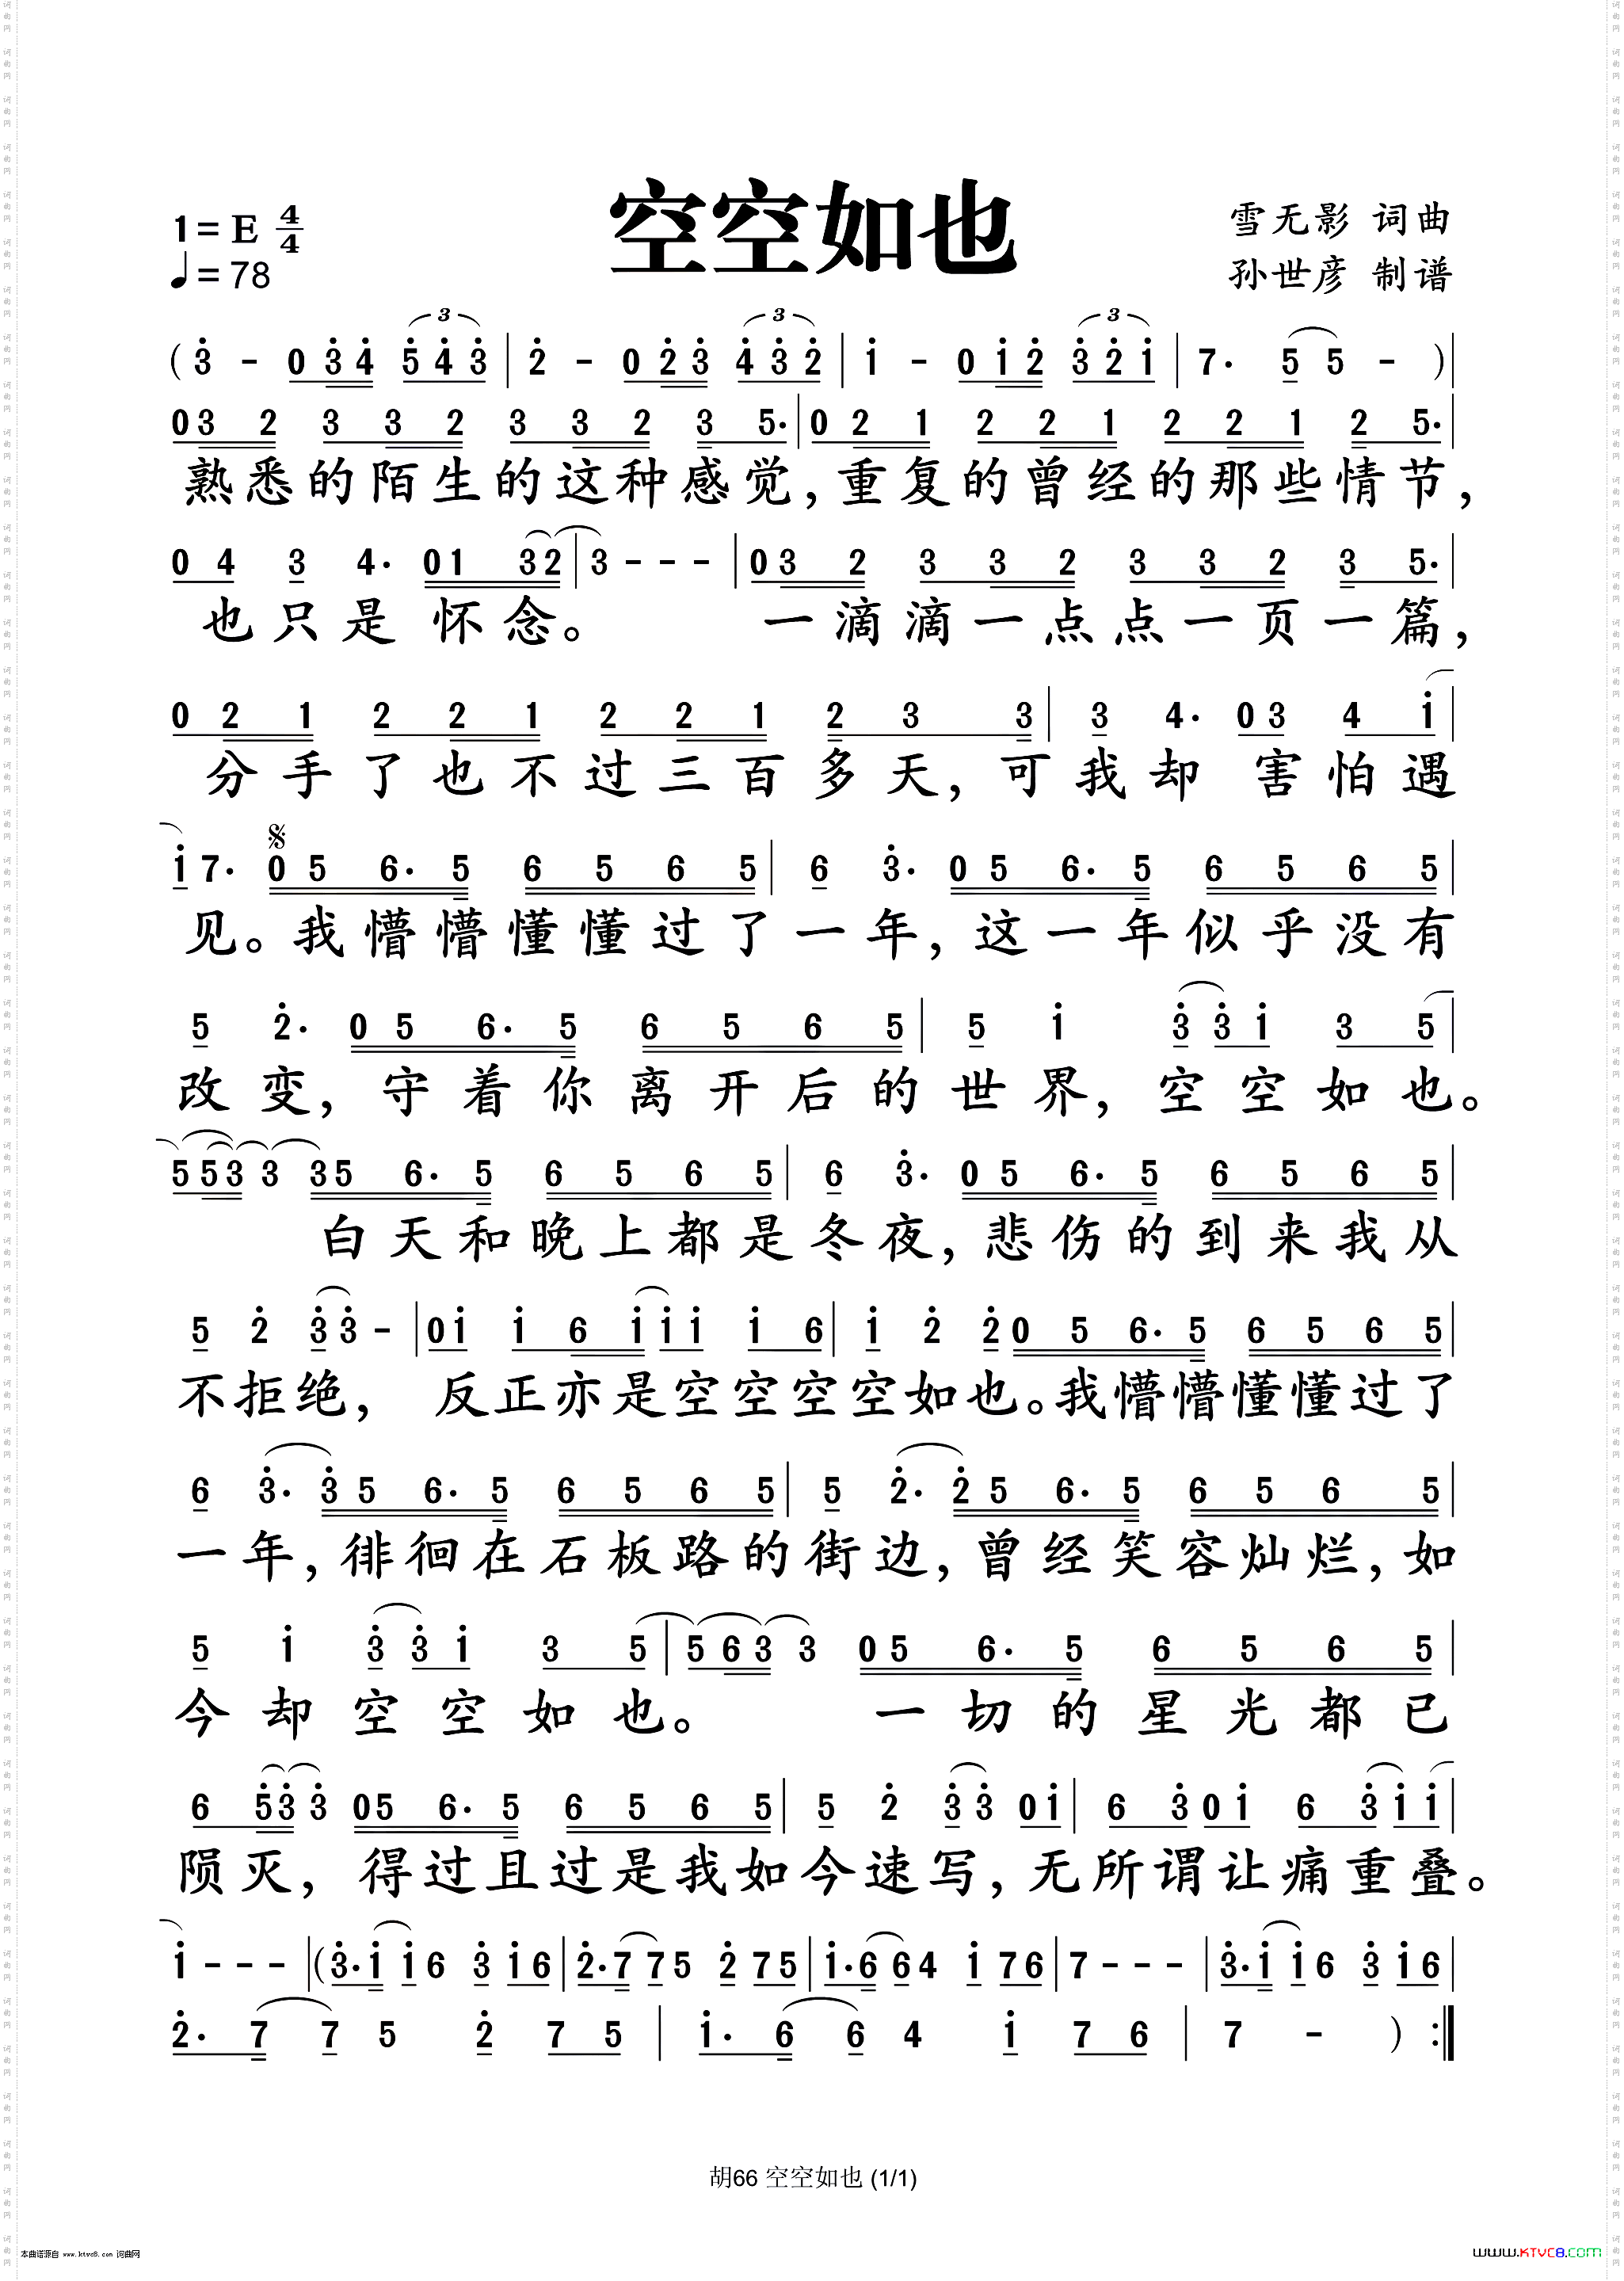 空空如也
1=E 4/4
♩=78
雪无影 词曲
孙世彦 制谱
(3̇ - 0 3̇ 4̇ 5̇ 4̇ 3̇ | 2̇ - 0 2̇ 3̇ 4̇ 3̇ 2̇ | 1̇ - 0 1̇ 2̇ 3̇ 2̇ 1̇ | 7. 5 5 - )|
0 3 2 3 3 2 3 3 2 3 5. | 0 2 1 2 2 1 2 2 1 2 5. |
熟悉的陌生的这种感觉,重复的曾经的那些情节,
0 4 3 4. 0 1 3 2 | 3 - - - | 0 3 2 3 3 2 3 3 2 3 5. |
也只是怀念。 一滴滴一点点一页一篇,
0 2 1 2 2 1 2 2 1 2 3 3 | 3 4. 0 3 4 1̇ |
分手了也不过三百多天,可我却 害怕遇
1̇ 7. 0 5 6. 5 6 5 6 5 | 6 3̇. 0 5 6. 5 6 5 6 5 |
见。我懵懵懂懂过了一年,这一年似乎没有
5 2̇. 0 5 6. 5 6 5 6 5 | 5 1̇ 3̇ 3̇ 1̇ 3 5 |
改变,守着你离开后的世界,空空如也。
5 5 3 3 3 5 6. 5 6 5 6 5 | 6 3̇. 0 5 6. 5 6 5 6 5 |
白天和晚上都是冬夜,悲伤的到来我从
5 2̇ 3̇ 3̇ - | 0 1̇ 1̇ 6 1̇ 1̇ 1̇ 1̇ 6 | 1̇ 2̇ 2̇ 0 5 6. 5 6 5 6 5 |
不拒绝, 反正亦是空空空空如也。我懵懵懂懂过了
6 3̇. 3̇ 5 6. 5 6 5 6 5 | 5 2̇. 2̇ 5 6. 5 6 5 6 5 |
一年,徘徊在石板路的街边,曾经笑容灿烂,如
5 1̇ 3̇ 3̇ 1̇ 3 5 | 5 6 3 3 0 5 6. 5 6 5 6 5 |
今却空空如也。 一切的星光都已
6 5̇ 3̇ 3̇ 0 5 6. 5 6 5 6 5 | 5 2̇ 3̇ 3̇ 0 1̇ | 6 3̇ 0 1̇ 6 3̇ 1̇ 1̇ |
陨灭,得过且过是我如今速写,无所谓让痛重叠。
1̇ - - - | (3̇. 1̇ 1̇ 6 3̇ 1̇ 6 | 2̇. 7 7 5 2̇ 7 5 | 1̇. 6 6 4 1̇ 7 6 | 7 - - - | 3̇. 1̇ 1̇ 6 3̇ 1̇ 6 |
2̇. 7 7 5 2̇ 7 5 | 1̇. 6 6 4 1̇ 7 6 | 7 - ) :|
胡66 空空如也 (1/1)
本曲谱源自 www.ktvc8.com 词曲网
www.KTVC8.com